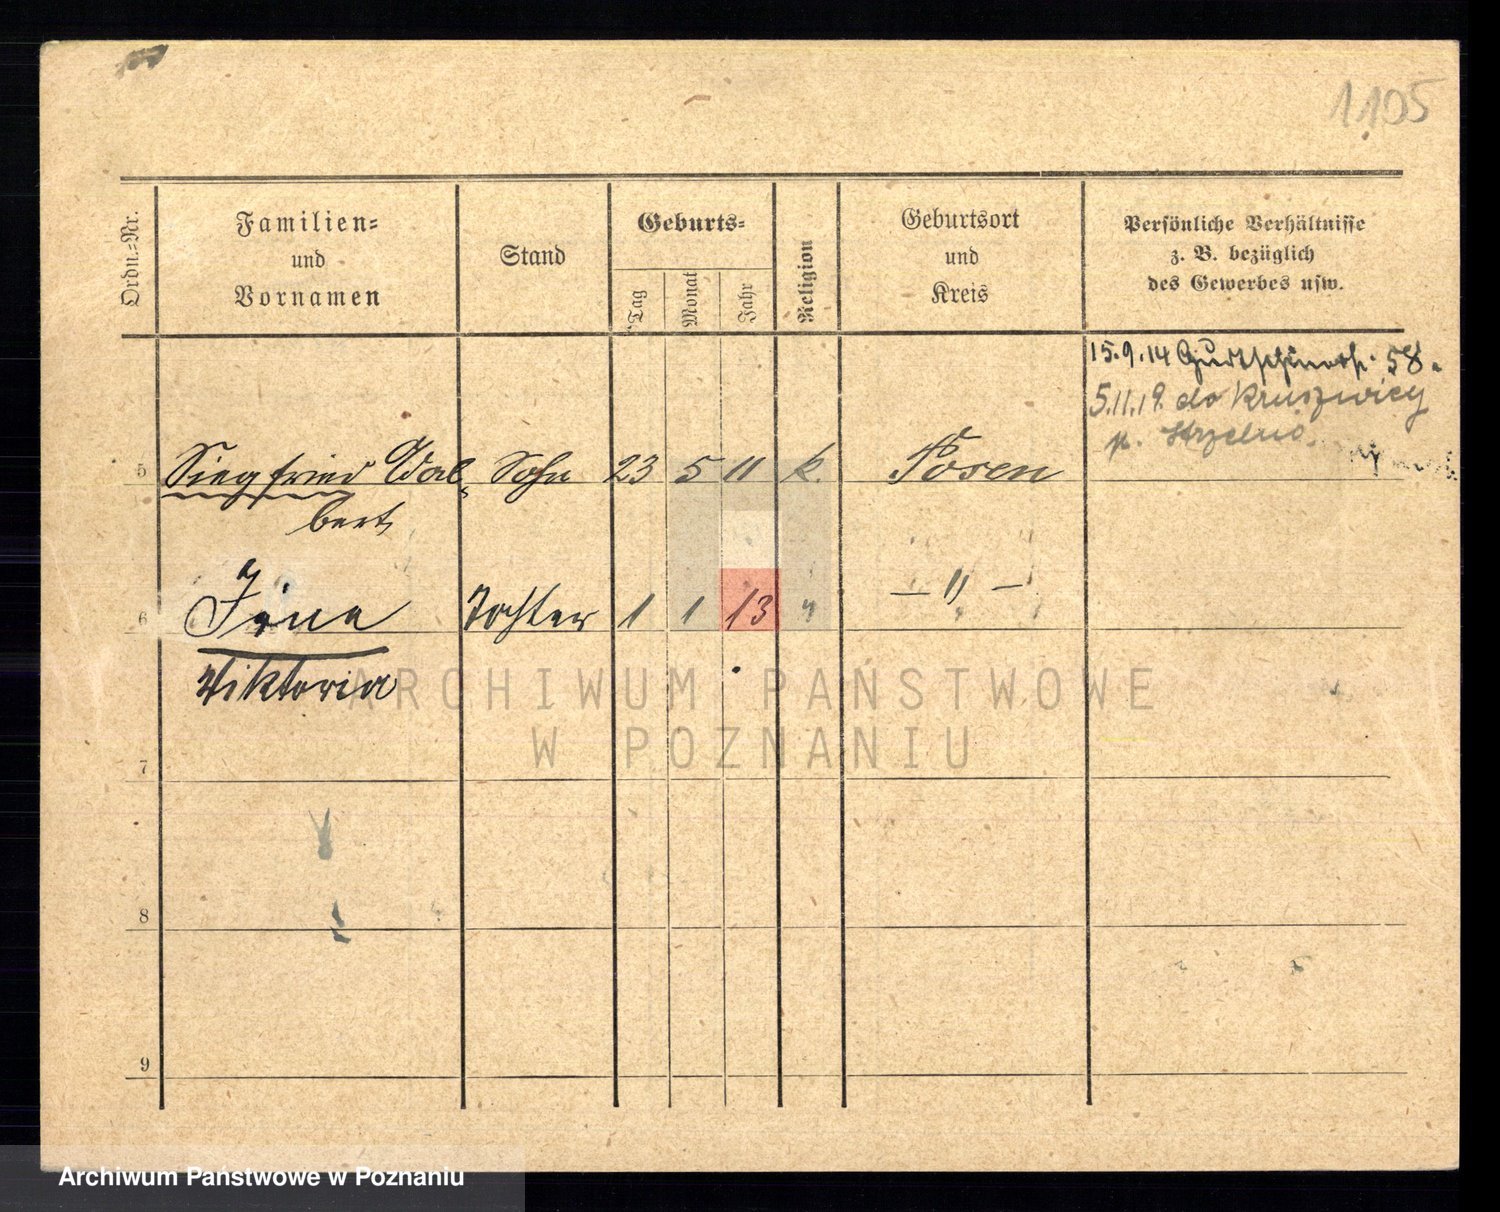 1105
Ordn.=Nr.
Familien=
und
Vornamen
Stand
Geburts=
Tag
Monat
Jahr
Religion
Geburtsort
und
Kreis
Persönliche Verhältnisse
z. B. bezüglich
des Gewerbes usw.
15.9.14 58.
5.11.19. do Kruszwicy
p. Strzelno
5 Siegfried Adal= Sohn 23 5 11 k. Posen
bert
6 Irene Tochter 1 1 13 " — " —
Viktoria
ARCHIWUM PAŃSTWOWE
W POZNANIU
7
8
9
Archiwum Państwowe w Poznaniu